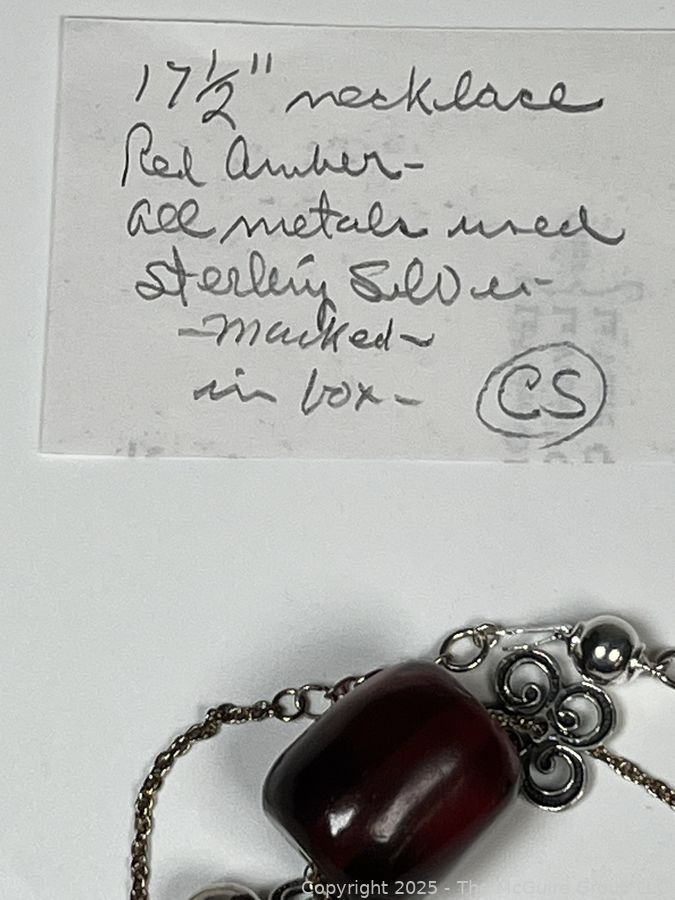 17 1/2" necklace
Red Amber-
all metals used
sterling Silver-
-marked-
in box-
CS
Copyright 2025 - The McGuire Group LLC